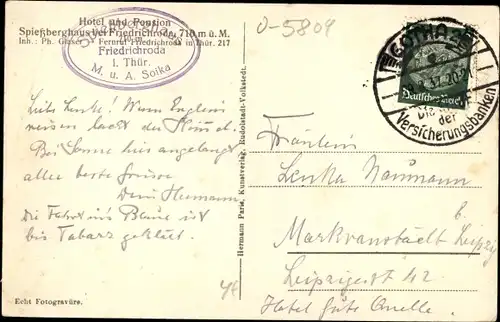 Hotel und Pension
Spießberghaus bei Friedrichroda, 710 m ü. M.
Inh.: Ph. Gläser Fernruf Friedrichroda in Thür. 217
Friedrichroda
i. Thür.
M. u. A. Soika
Liebe Lenka! Wenn Englein
reisen lacht der Himmel.
Bei Sonne hier angelangt
alles beste Grüsse
Dein Hermann
die Fahrt ins Blaue ist
bis Tabarz geklärt.
Echt Fotogravüre.
Hermann Paris, Kunstverlag, Rudolstadt-Volkstedt.
0-5809
GOTHA 2
Deutsches Reich
Die
der
Versicherungsbanken
Fräulein
Lenka Naumann
b.
Markranstädt Leipzig
Leipzigerst 42
Hotel Gute Quelle.